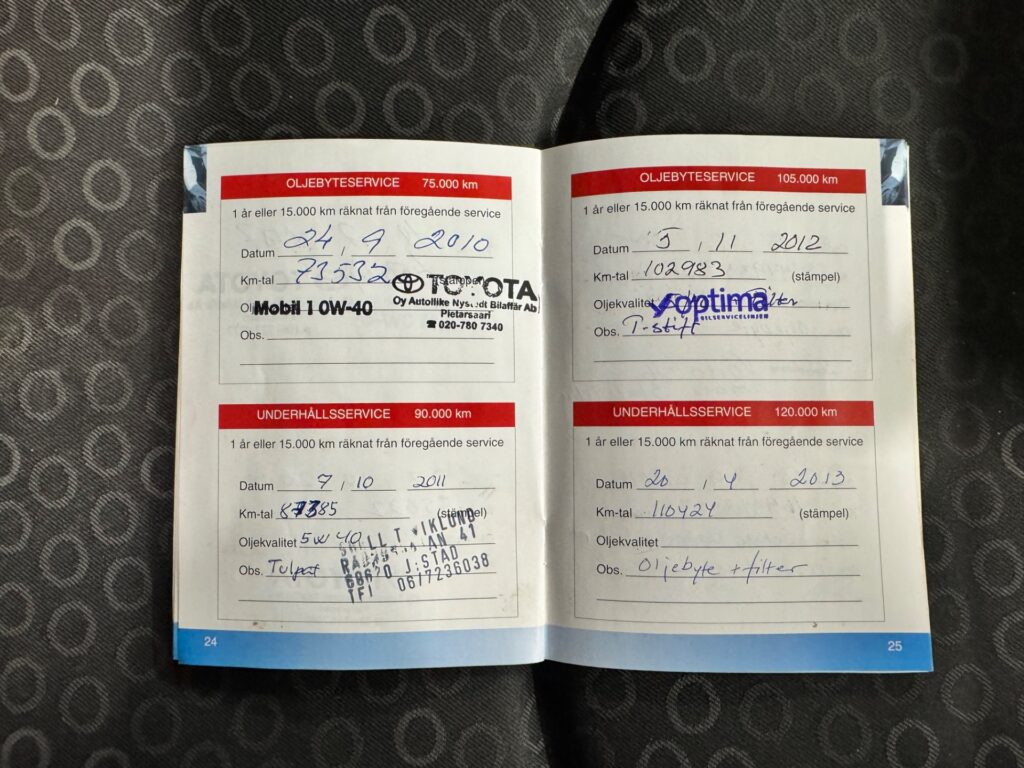 OLJEBYTESERVICE 75.000 km
1 år eller 15.000 km räknat från föregående service
Datum 24 , 9 2010
Km-tal 73532
TOYOTA
Oy Autoliike Nystedt Bilaffär Ab
Mobil 1 0W-40
Pietarsaari
☎ 020-780 7340
Obs.
UNDERHÅLLSSERVICE 90.000 km
1 år eller 15.000 km räknat från föregående service
Datum 7 / 10 2011
Km-tal 87385 (stämpel)
Oljekvalitet 5W40
SHELL T VIKLUND
41
68620 J:STAD
TFI 0617236038
Obs.
24
OLJEBYTESERVICE 105.000 km
1 år eller 15.000 km räknat från föregående service
Datum 5 , 11 2012
Km-tal 102983 (stämpel)
Oljekvalitet filter
optima
BILSERVICELINJEN
Obs. T-stift
UNDERHÅLLSSERVICE 120.000 km
1 år eller 15.000 km räknat från föregående service
Datum 20 , 4 2013
Km-tal 110424 (stämpel)
Oljekvalitet
Obs. Oljebyte + filter
25